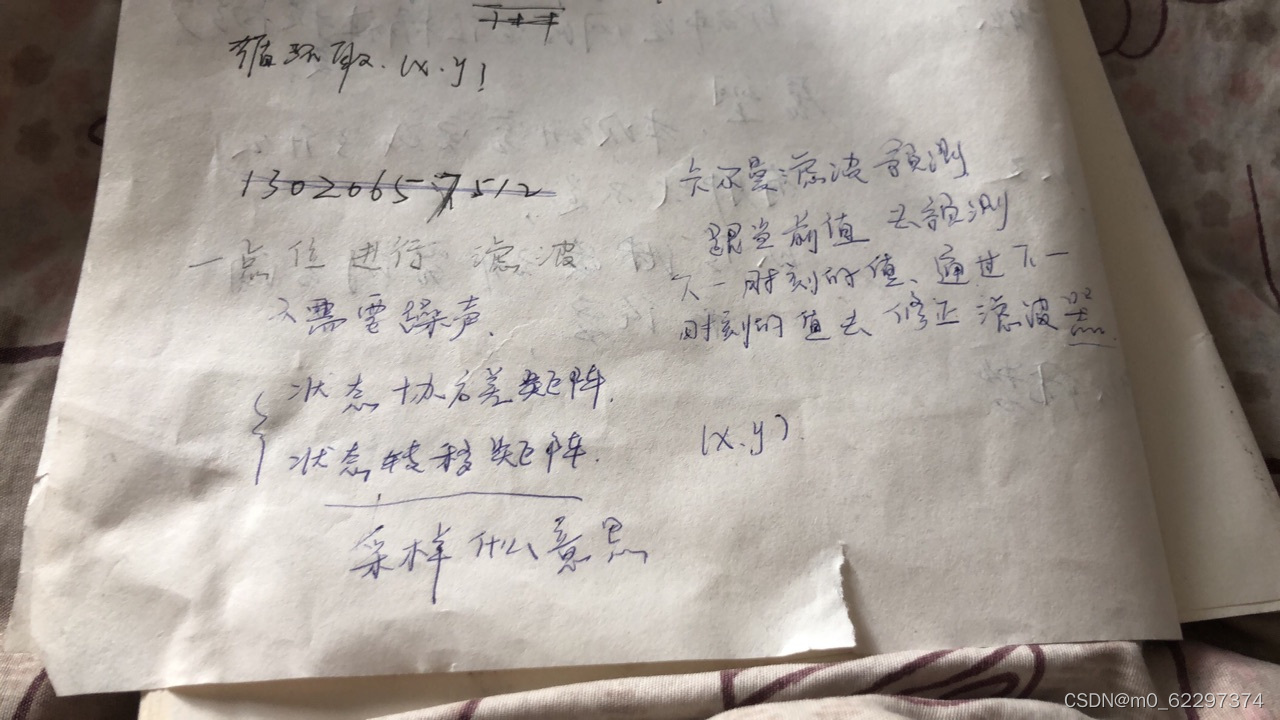 循环取.(x.y)
13020657512
一点位进行滤波
不需要噪声.
状态协方差矩阵.
状态转移矩阵.
采样什么意思
卡尔曼滤波预测
跟当前值去预测
下一时刻的值、通过下一
时刻的值去修正滤波器.
(x.y)
CSDN@m0_62297374